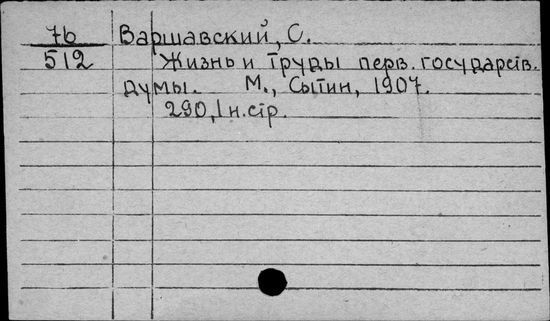 7б Варшавский, С.
512 Жизнь и труды перв. государств.
думы. М., Сытин, 1907.
290, 1 н. стр.